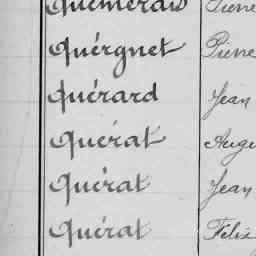 Quémerais Pierre
Quérgnet Pierre
Quérard Jean
Quérat Augu
Quérat Jean
Quérat Félix